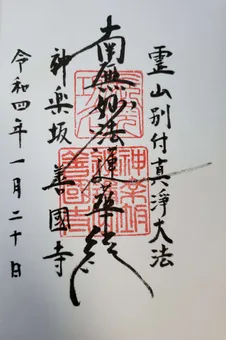 霊山別付真浄大法
南無妙法蓮華経
神楽坂 善國寺
令和四年一月二十日